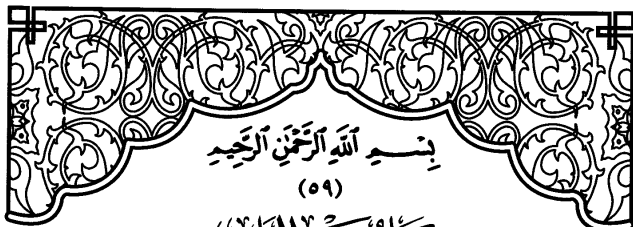 بِسْمِ ٱللَّهِ ٱلرَّحْمَٰنِ ٱلرَّحِيمِ
(٥٩)